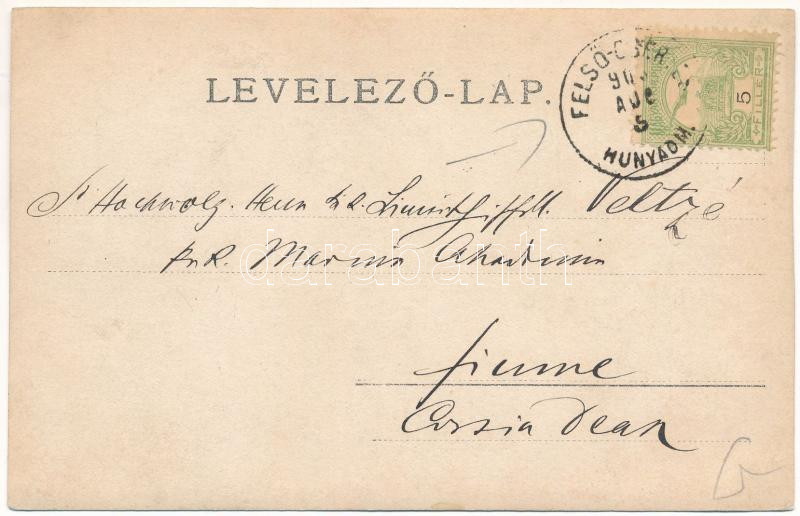 LEVELEZŐ-LAP.
FELSŐ-CSER
AUG
9
HUNYADM.
5
FILLÉR
Hochwolg. Herrn k. k. Veltzé
k. u. k. Marine Akademie
Fiume
Corsia Deak
darabanth